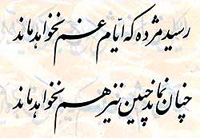 رسید مژده که ایّام غم نخواهد ماند
چنان نماند چنین نیز هم نخواهد ماند